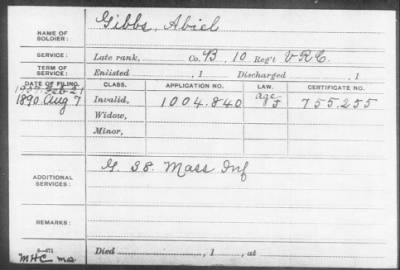 Gibbs, Abiel
NAME OF
SOLDIER:
SERVICE:
Late rank, Co. B, 10 Reg't V.R.C.
TERM OF
SERVICE:
Enlisted , 1 Discharged , 1
DATE OF FILING. CLASS. APPLICATION NO. LAW. CERTIFICATE NO.
Feb 21 age
1890 Aug 7 Invalid, 1004.840 755.255
Widow,
Minor,
ADDITIONAL
SERVICES:
G. 38. Mass Inf
REMARKS:
Died , 1 , at